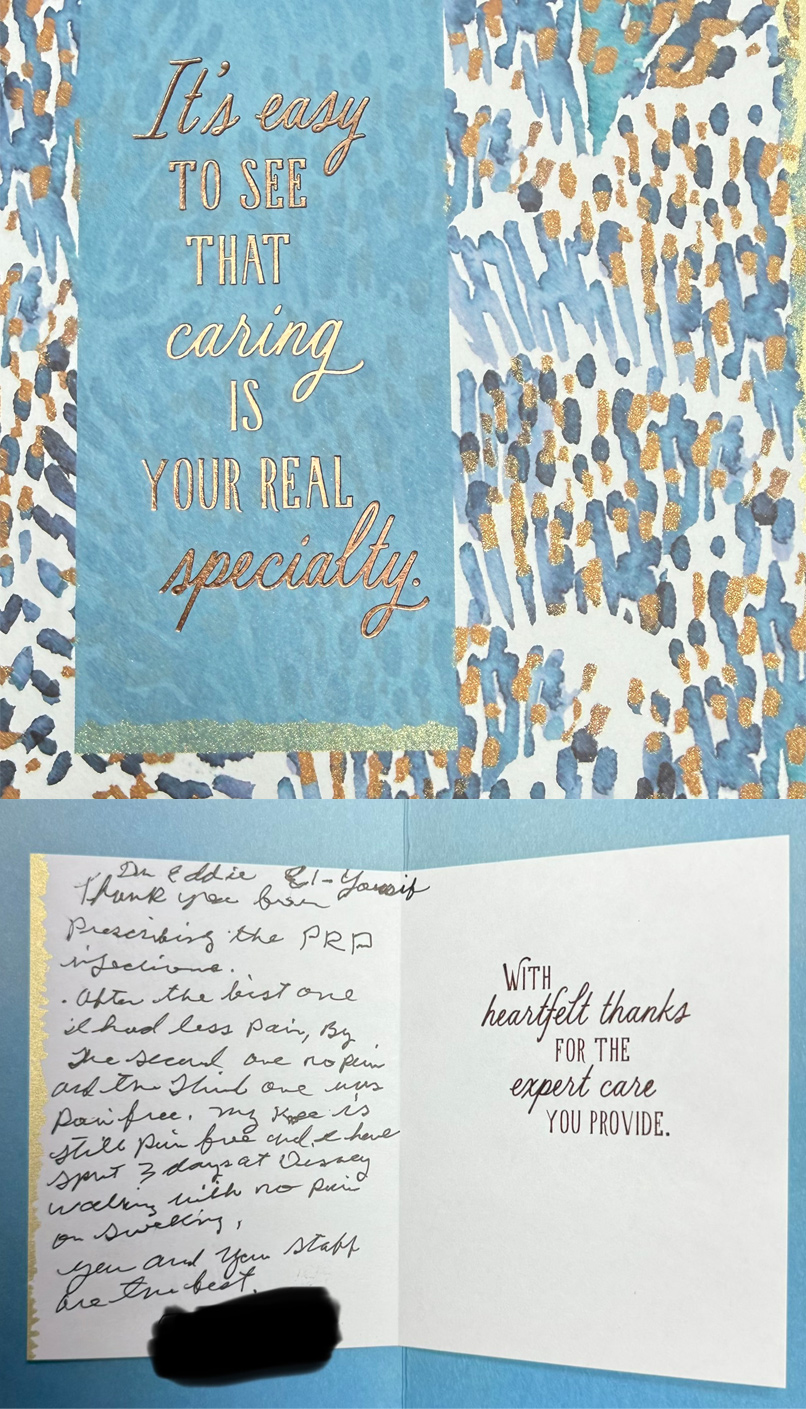 It's easy
TO SEE
THAT
caring
IS
YOUR REAL
specialty.
Dr Eddie El-Yousif
Thank you for
Prescribing the PRP
injections.
. After the first one
I had less pain, By
The second one no pain
and the Third one was
Pain free. my knee is
still pain free and I have
spent 3 days at Disney
walking with no pain
or swelling,
you and your staff
are the best.
WITH
heartfelt thanks
FOR THE
expert care
YOU PROVIDE.